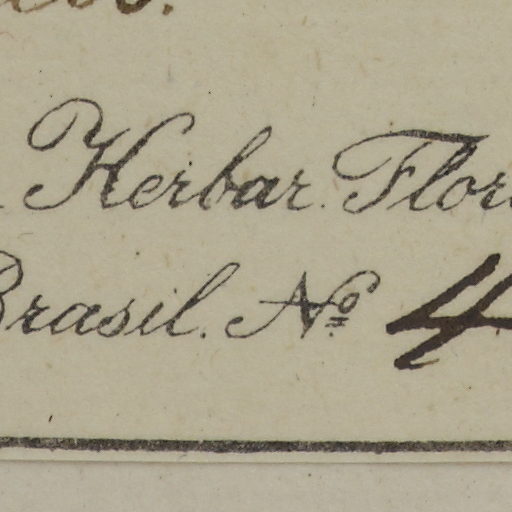 Herbar. Flor
Brasil. No 4